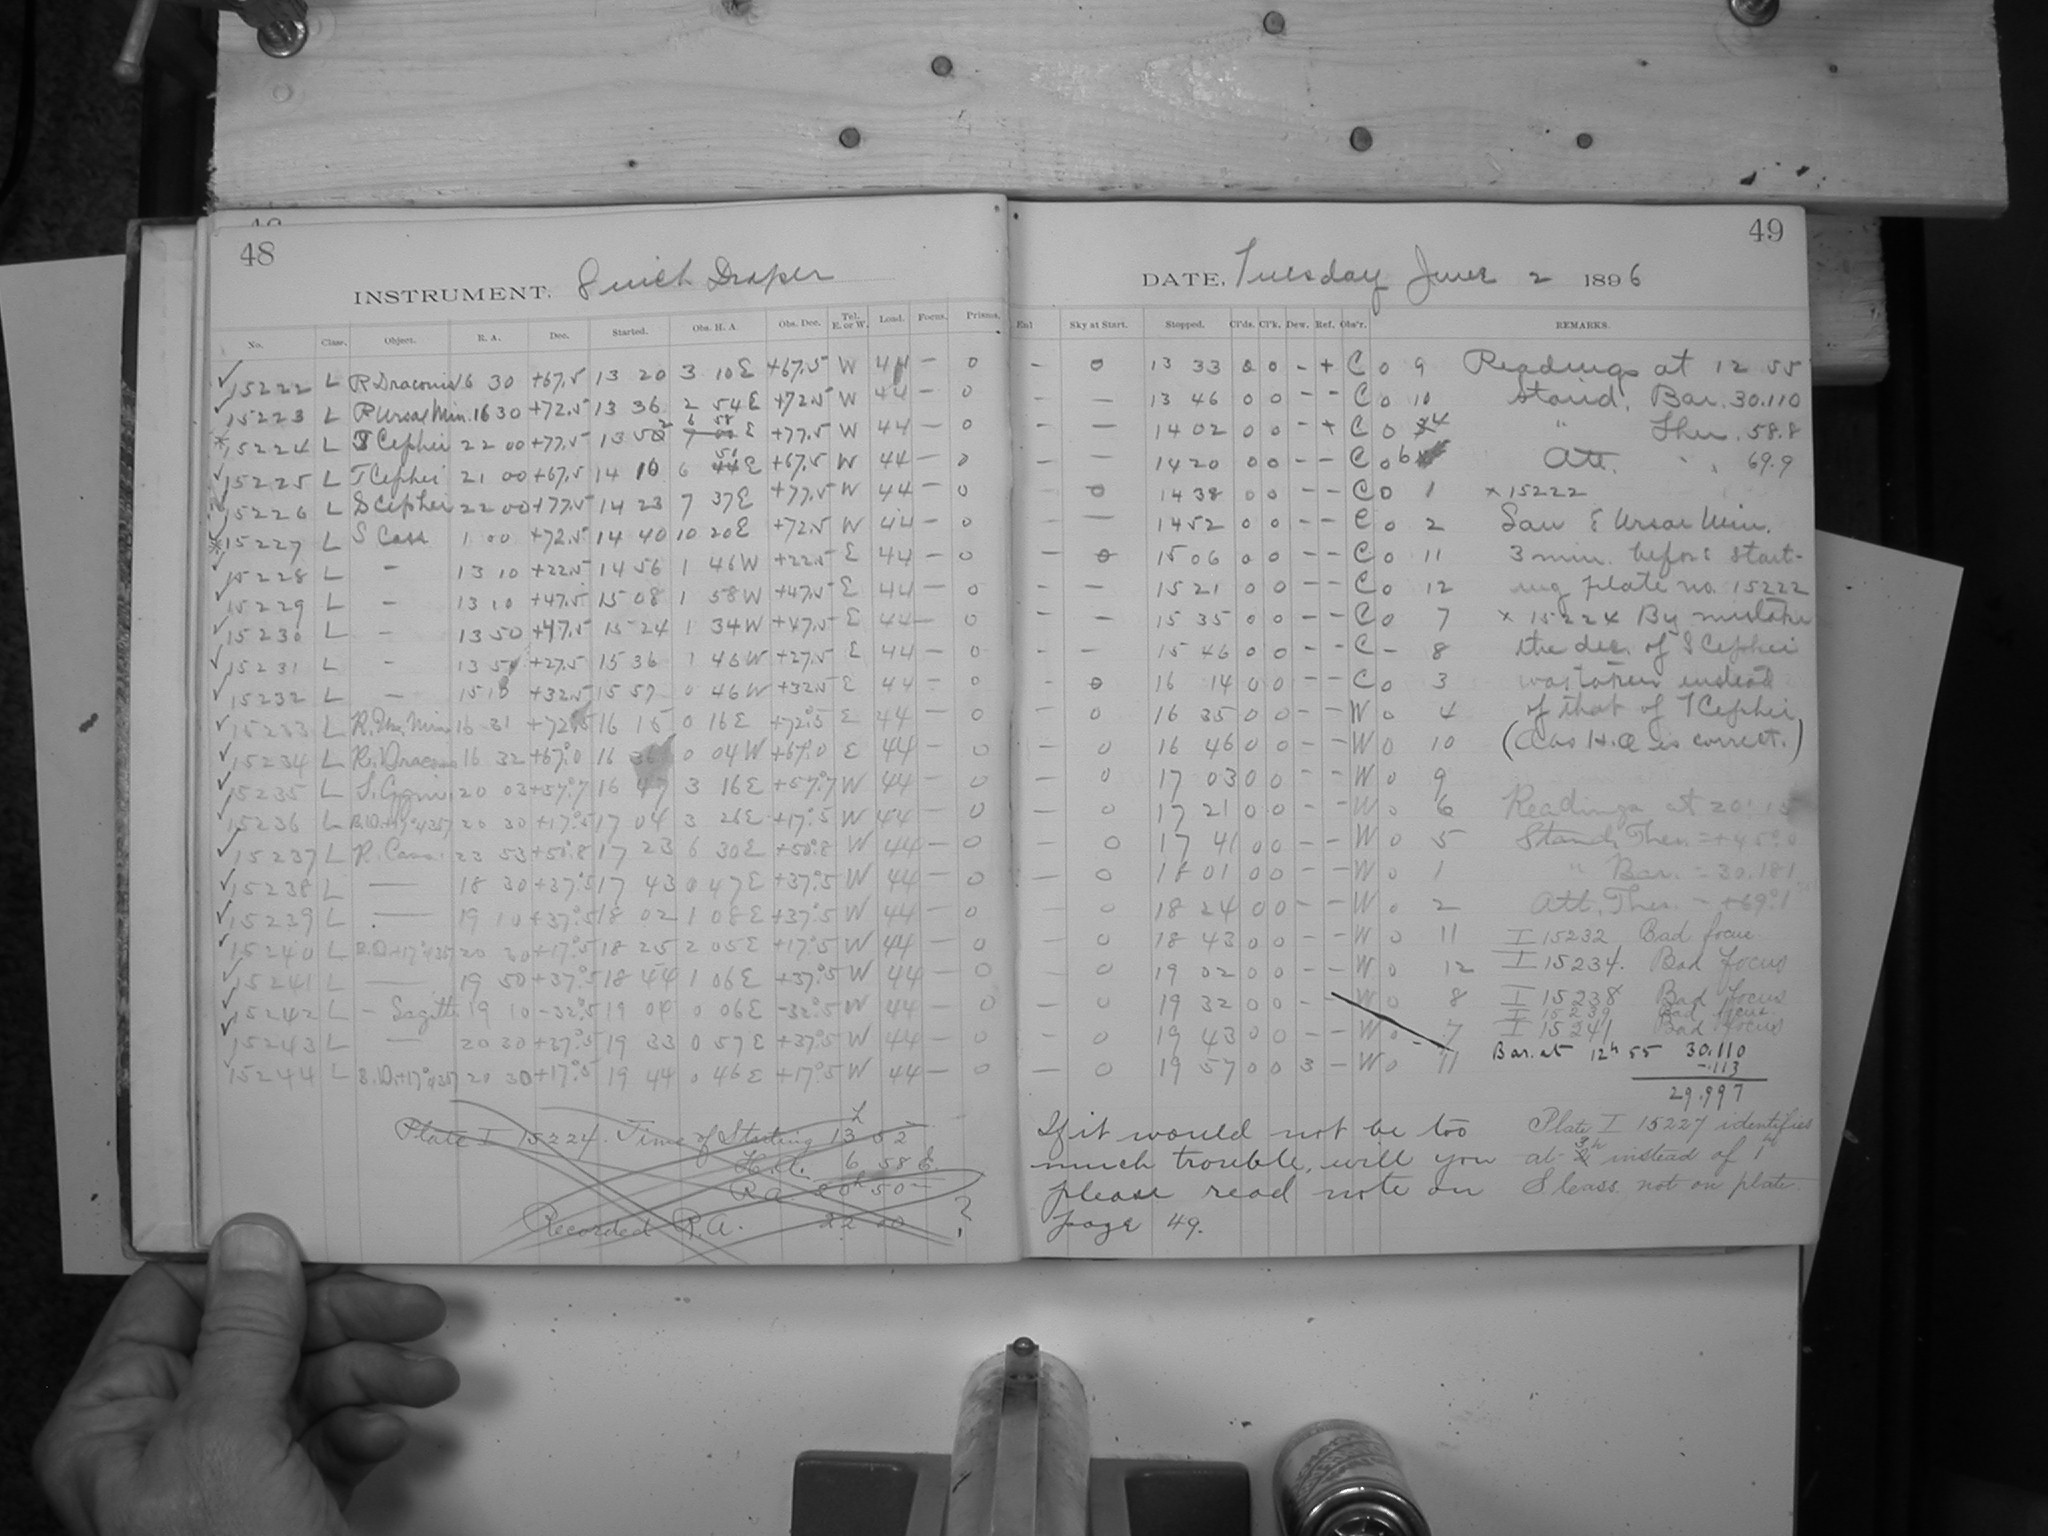 48
INSTRUMENT. 8 inch Draper
No. Class. Object. R. A. Dec. Started. Obs. H. A. Obs. Dec. Tel. E. or W. Load. Focus. Prisms.
15222 L R Draconis 16 30 +67.5 13 20 3 10 E +67.5 W 44 – 0
15223 L R Ursae Min. 16 30 +72.5 13 36 2 54 E +72.5 W 44 – 0
15224 L Cephei 22 00 +77.5 13 52 6 58 E +77.5 W 44 – 0
15225 L T Cephei 21 00 +67.5 14 10 6 51 E +67.5 W 44 – 0
15226 L S Cephei 22 00 +77.5 14 23 7 37 E +77.5 W 44 – 0
15227 L S Cass 1 00 +72.5 14 40 10 20 E +72.5 W 44 – 0
15228 L – 13 10 +22.5 14 56 1 46 W +22.5 E 44 – 0
15229 L – 13 10 +47.5 15 08 1 58 W +47.5 E 44 – 0
15230 L – 13 50 +47.5 15 24 1 34 W +47.5 E 44 – 0
15231 L – 13 5 +27.5 15 36 1 46 W +27.5 E 44 – 0
15232 L – 15 10 +32.5 15 57 0 46 W +32.5 E 44 – 0
15233 L R. Urs. Min. 16 31 +72.5 16 15 0 16 E +72.5 E 44 – 0
15234 L R. Dracon 16 32 +67.0 16 36 0 04 W +67.0 E 44 – 0
15235 L S. Cygni 20 03 +57.7 16 47 3 16 E +57.7 W 44 – 0
15236 L B.D.+17°4357 20 30 +17.5 17 04 3 26 E +17.5 W 44 – 0
15237 L R. Cass. 23 53 +50.8 17 23 6 30 E +50.8 W 44 – 0
15238 L — 18 30 +37.5 17 43 0 47 E +37.5 W 44 – 0
15239 L — 19 10 +37.5 18 02 1 08 E +37.5 W 44 – 0
15240 L B.D.+17°4357 20 30 +17.5 18 25 2 05 E +17.5 W 44 – 0
15241 L — 19 50 +37.5 18 44 1 06 E +37.5 W 44 – 0
15242 L – Sagitt 19 10 -32.5 19 04 0 06 E -32.5 W 44 – 0
15243 L — 20 30 +37.5 19 33 0 57 E +37.5 W 44 – 0
15244 L B.D.+17°4357 20 30 +17.5 19 44 0 46 E +17.5 W 44 – 0
Plate I 15224. Time of Starting 13h 52
H.A. 6 58 E.
R.A. 20h 50
Recorded R.A. 22 00 ?
49
DATE, Tuesday June 2 1896
Sky at Start. Stopped. Cl'ds. Cl'k. Dew. Ref. Obs'r. REMARKS.
– 0 13 33 0 0 – + C 0 9
– – 13 46 0 0 – – C 0 10
– – 14 02 0 0 – + C 0 4
– – 14 20 0 0 – – C 0 6
– 0 14 38 0 0 – – C 0 1
– – 14 52 0 0 – – C 0 2
– 0 15 06 0 0 – – C 0 11
– – 15 21 0 0 – – C 0 12
– – 15 35 0 0 – – C 0 7
– – 15 46 0 0 – – C – 8
– 0 16 14 0 0 – – C 0 3
– 0 16 35 0 0 – – W 0 4
– 0 16 46 0 0 – – W 0 10
– 0 17 03 0 0 – – W 0 9
– 0 17 21 0 0 – – W 0 6
– 0 17 41 0 0 – – W 0 5
– 0 18 01 0 0 – – W 0 1
– 0 18 24 0 0 – – W 0 2
– 0 18 43 0 0 – – W 0 11
– 0 19 02 0 0 – – W 0 12
– 0 19 32 0 0 – – W 0 8
– 0 19 43 0 0 – – W 0 7
– 0 19 57 0 0 3 – W 0 11
Readings at 12 55
stand. Bar. 30.110
" Ther. 58.8
Att. " " 69.9
x 15222
Saw ε Ursae Min.
3 min. before start-
ing plate no. 15222
x 15224 By mistake
the dec. of S Cephei
was taken instead
of that of T Cephei
(Obs H.A is correct.)
Readings at 20h 15
Stand. Ther. = +45.0
" Bar. = 30.181
Att. Ther. = +69.1
I 15232 Bad focus
I 15234. Bad focus
I 15238 Bad focus
I 15239 Bad focus
I 15241 Bad focus
Bar. at 12h 55 30.110
-.113
29.997
If it would not be too
much trouble, will you
please read note on
page 49.
Plate I 15227 identifies
at 3h instead of 1h
S Cass not on plate.